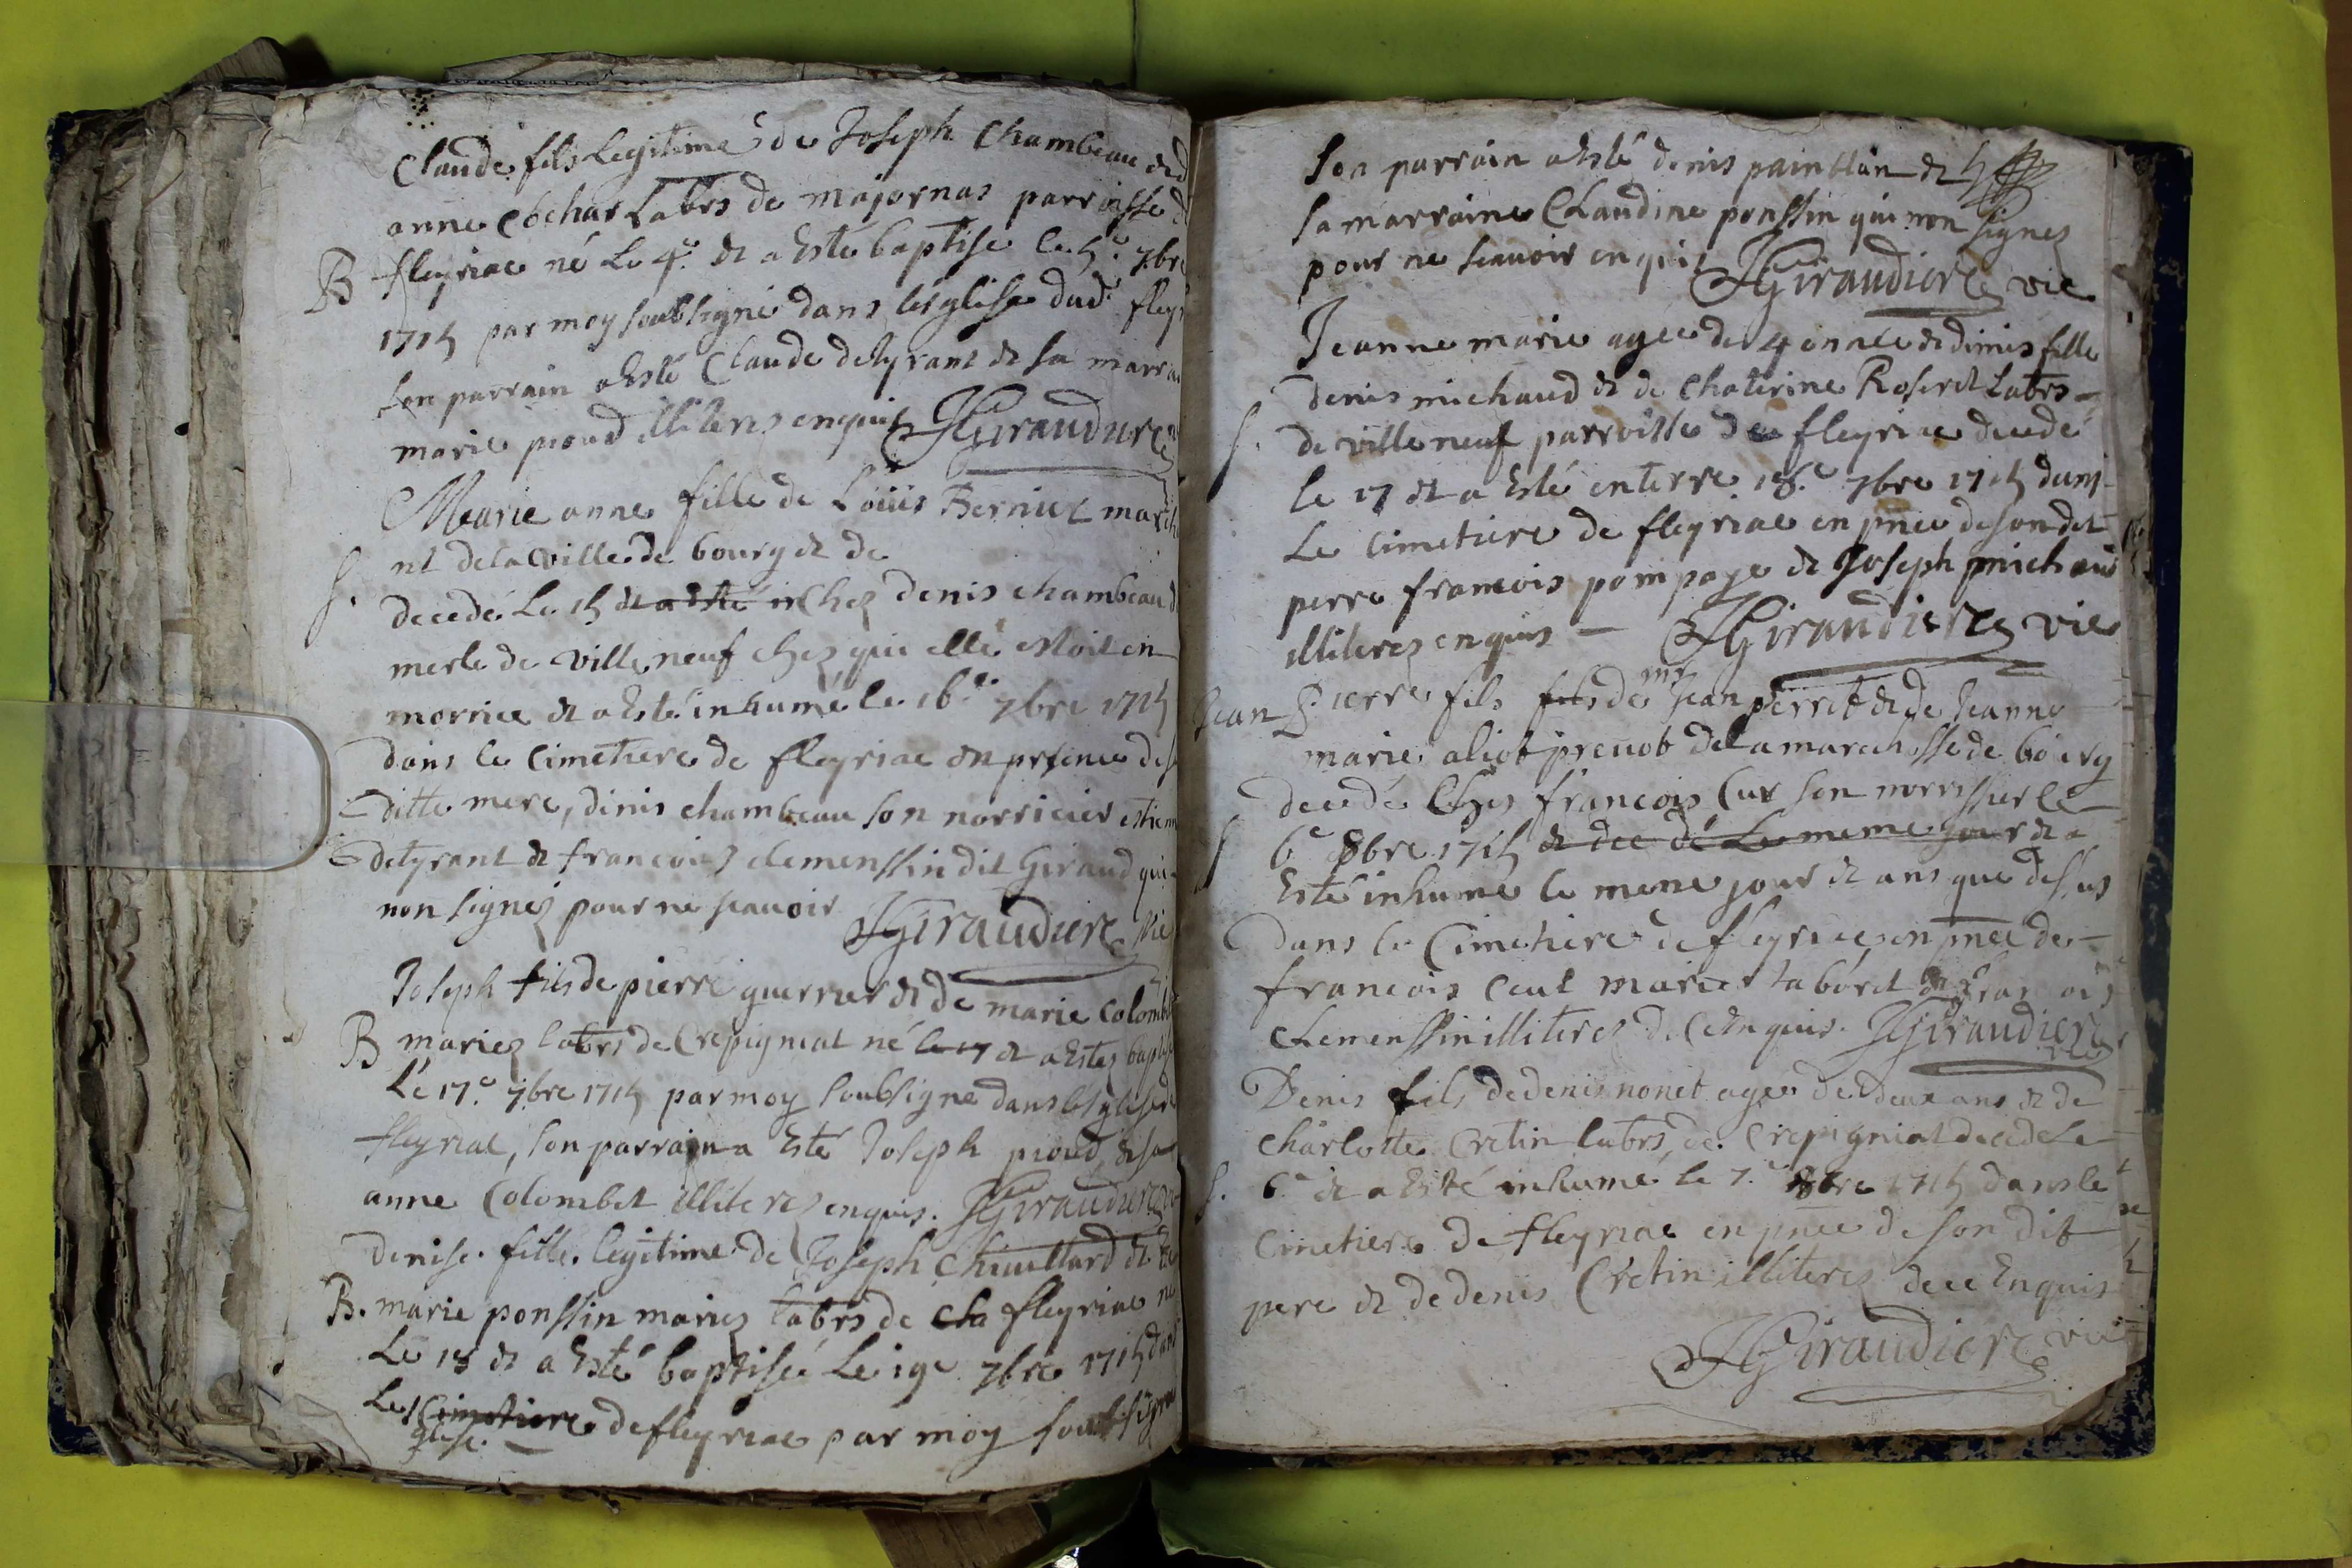 Claude fils Legitime de Joseph Chambeau et d
anne Cochar Labrs de majornas parroisse d
B fleyriac né Le 4e. et a Esté baptise le 5e. 7bre
1715 par moy soubsigné dans lesglise dud. fley
son parrain a Esté Claude detyrant et sa marra
marie pioud illiteres enquis JGiraudiere
Marie anne fille de Loüis Bernier march
nt de la ville de bourg et de
S. decedé Le 15 et a esté in Chez denis chambeau d
merle de villeneuf chez qui elle estoit en
norrice et a Esté inhumé le 16e 7bre 1715
dans le Cimetiere de fleyriac en presence de s
ditte mere, dinis chambeau son norricier estienn
detyrant et francois clemenssin dit Giraud qui
non signez pour ne scauoir JGiraudiere vic
Joseph fils de pierre guerrier et de marie Colomb
B mariez labrs de Crepigniat né le 17 et a Estez bapt
Le 17e 7bre 1715 par moy soubsigne dans lesglise d
fleyriac, son parrain a Esté Joseph pioud, et sa
anne Colombet illiteres enquis. JGiraudiere
denise fille legitime de Joseph Chiuillard et de
B. marie ponssin mariez labrs de cha fleyriac né
Le 18 et a Esté baptisée Le 19e 7bre 1715 dans
Les Cimetiere de fleyriac par moy soubsigne
glise.
son parrain a Esté denis painblan et
sa marraine Claudine ponssin qui non signez
pour ne scauoir enquis JGiraudiere vic
Jeanne marie agée de 4 année et dimis fille
denis michaud et de Chaterine Roseret Labrs
S. de villeneuf parroisse de fleyriac decedé
le 17 et a Esté enterre 18e. 7bre 1715 dans
Le Cimetiere de fleyriac en pnce de son dit
perre francois pompage et Joseph michaud
illiteres enquis — JGiraudiere vic
mr
Jean Pierre fils fils de Jean perret et de Jeanne
marie aliot preuot de la marechosse de bourg
decedé Chez francois Cur son norrissier le
S 6e 8bre 1715 et dec dé Le meme jour et a
Esté inhumé le meme jour et ans que dessus
dans le Cimetiere de fleyriac, en pnce de
francois Ceut marie tabóret et francois
Clemenssin illiteres de Ce Enquis. JGiraudiere
vic
Denis fils de denis nonet agée de deux ans et de
Charlotte Cretin labrs, de Crepigniat decede Le
S. 6e et a Esté inhumé le 7e 8bre 1715 dans le
Cimetiere de fleyriac en pnce de son dit
pere et de denis Cretin illiteres de ce Enquis
JGiraudiere vic